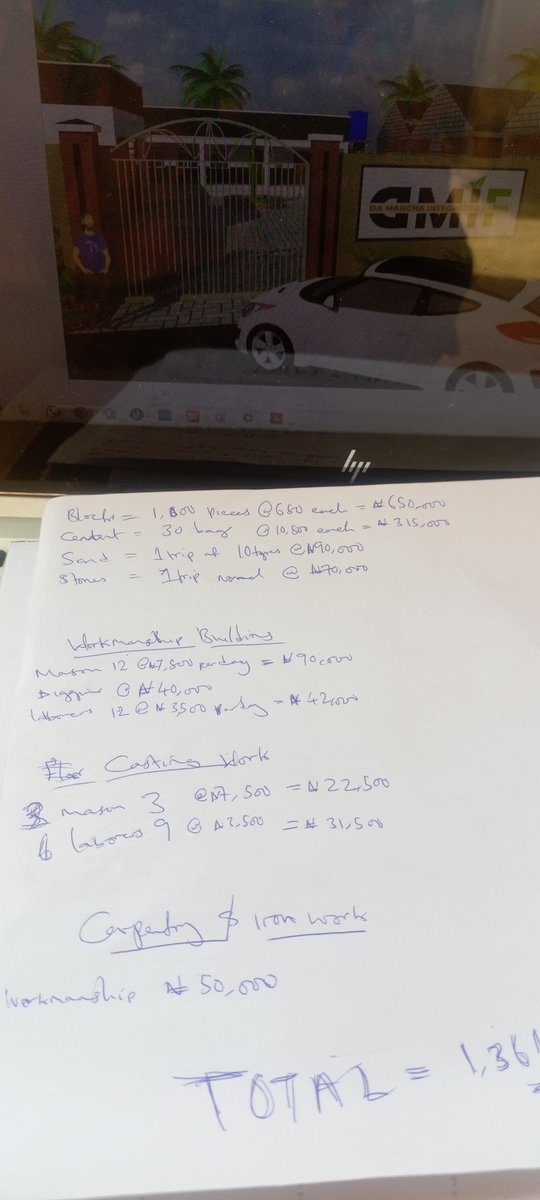 GMIF
DA MANCHA INTEG
hp
Blocks = 1,000 pieces @650 each = ₦650,000
Cement = 30 bags @10,500 each = ₦315,000
Sand = 1 trip of 10 tyres @₦90,000
Stones = 1 trip normal @ ₦70,000
Workmanship Building
Mason 12 @₦7,500 per day = ₦90,000
Digging @ ₦40,000
Laborers 12 @ ₦3,500 per day = ₦42,000
Casting Work
Mason 3 @₦7,500 = ₦22,500
Laborers 9 @ ₦3,500 = ₦31,500
Carpentry & Iron work
Workmanship ₦50,000
TOTAL = 1,361